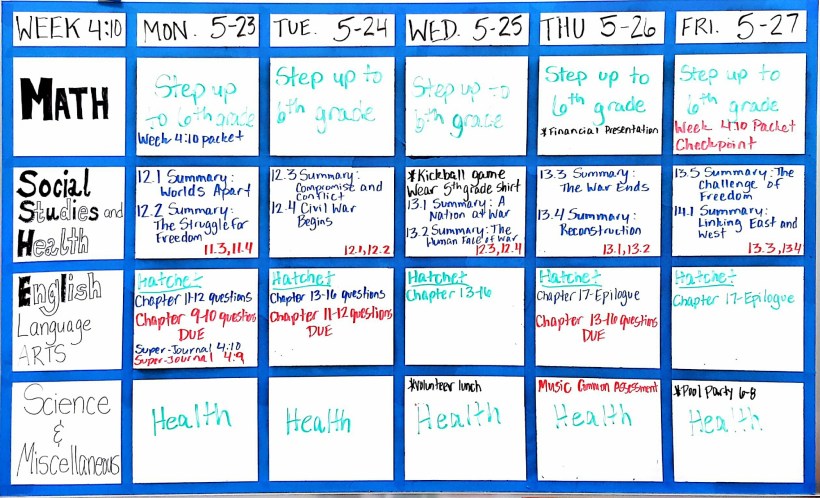 WEEK 4:10
MON. 5-23
TUE. 5-24
WED. 5-25
THU 5-26
FRI. 5-27
MATH
Step up
to 6th grade
Week 4:10 packet
Step up to
6th grade
Step up to
6th grade
Step up to
6th grade
*Financial Presentation
Step up to
6th grade
Week 4:10 Packet
Checkpoint
Social
Studies and
Health
12.1 Summary:
Worlds Apart
12.2 Summary:
The Struggle for
Freedom
11.3, 11.4
12.3 Summary:
Compromise and
Conflict
12.4 Civil War
Begins
12.1, 12.2
*Kickball game
Wear 5th grade shirt
13.1 Summary: A
Nation at War
13.2 Summary: The
Human Face of War
12.3, 12.4
13.3 Summary:
The War Ends
13.4 Summary:
Reconstruction
13.1, 13.2
13.5 Summary: The
Challenge of
Freedom
14.1 Summary:
Linking East and
West
13.3, 13.4
English
Language
ARTS
Hatchet
Chapter 11-12 questions
Chapter 9-10 questions
DUE
Super-Journal 4:10
Super-Journal 4:9
Hatchet
Chapter 13-16 questions
Chapter 11-12 questions
DUE
Hatchet
Chapter 13-16
Hatchet
Chapter 17-Epilogue
Chapter 13-16 questions
DUE
Hatchet
Chapter 17-Epilogue
Science
&
Miscellaneous
Health
Health
*Volunteer lunch
Health
Music Common Assessment
Health
*Pool Party 6-8
Health